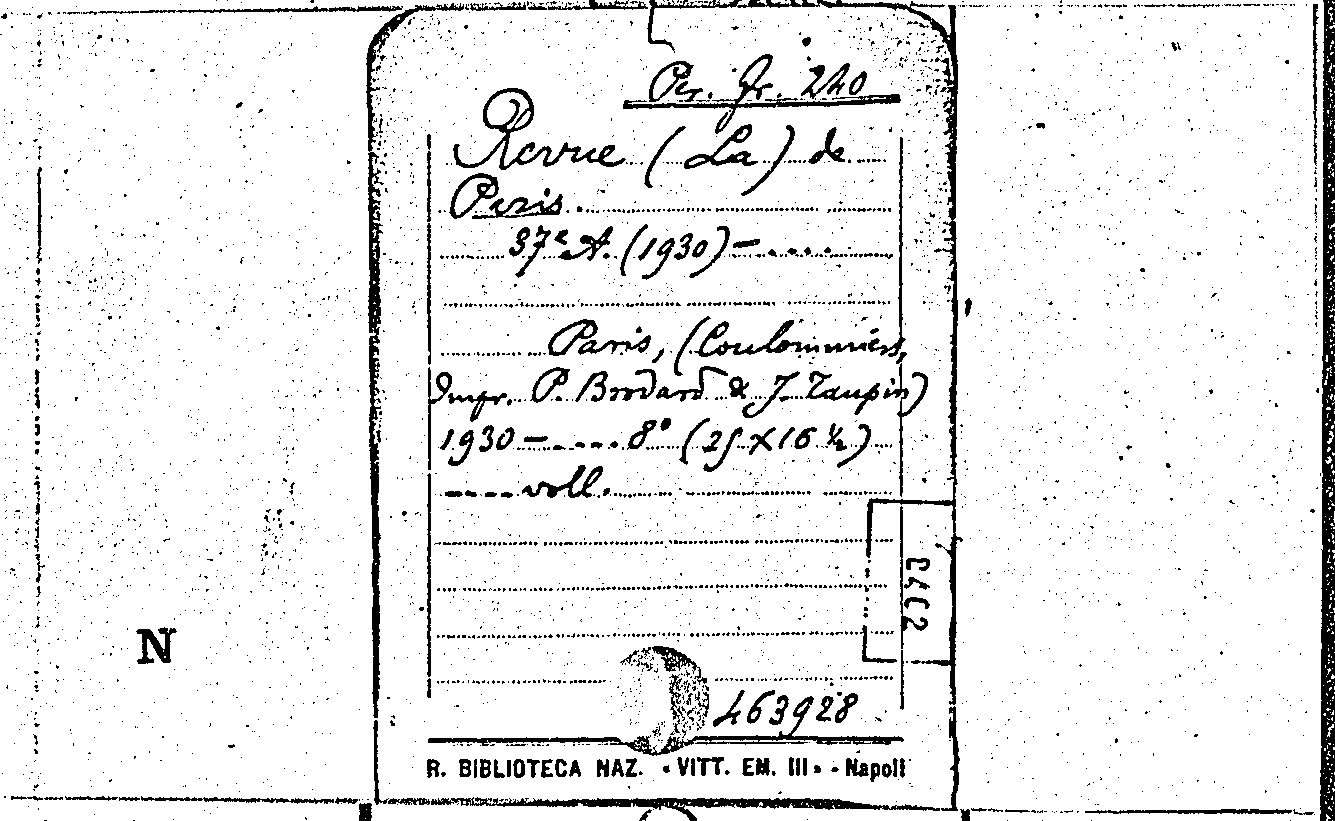 Per. fr. 240
Revue (La) de
Paris.
37e A. (1930) - ....
Paris, (Coulommiers,
Impr. P. Brodard & J. Taupin)
1930 - .... 8° (25 X 16 ½)
---- voll.
N
463928
R. BIBLIOTECA NAZ. « VITT. EM. III » - Napoli